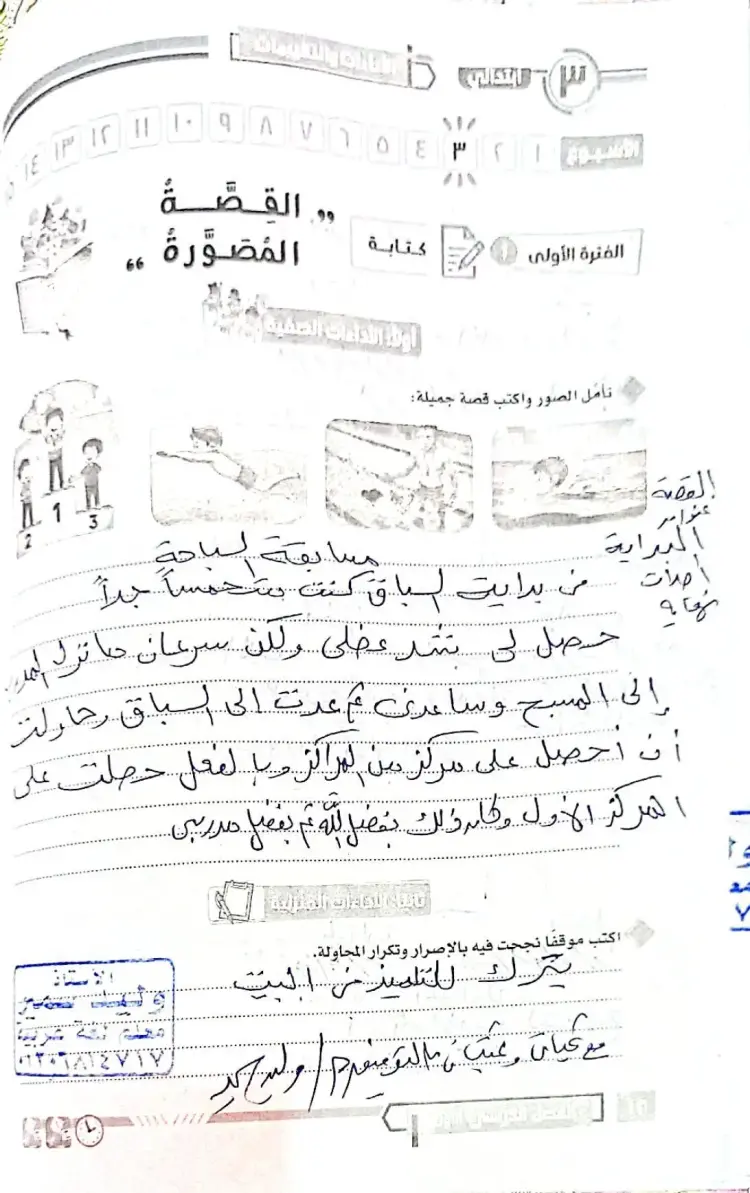 الأداءات والتقييمات
٣ ابتدائي
الأسبوع ١ ٢ ٣ ٤ ٥ ٦ ٧ ٨ ٩ ١٠ ١١ ١٢ ١٣ ١٤
الفترة الأولى ١ كتابة
,, القِصَّةُ
المُصَوَّرةُ “
أولًا: الأداءات الصفية
تأمل الصور واكتب قصة جميلة:
2 1 3
القصة
عنوان
البداية
أحداث
نهاية
مسابقة السباحة
من بداية السباق كنت متحمساً جداً
حصل لى شد عضلى ولكن سرعان ما نزل
إلى المسبح وساعدنى ثم عدت الى السباق وحاولت
أن أحصل على مركز من المراكز وبالفعل حصلت على
المركز الأول وكان ذلك بفضل الله ثم بفضل مدربى
ثانيًا: الأداءات المنزلية
اكتب موقفًا نجحت فيه بالإصرار وتكرار المحاولة.
يترك للتلميذ فى البيت
الأستاذ
وليد سمير
معلم لغة عربية
مع تحياتى